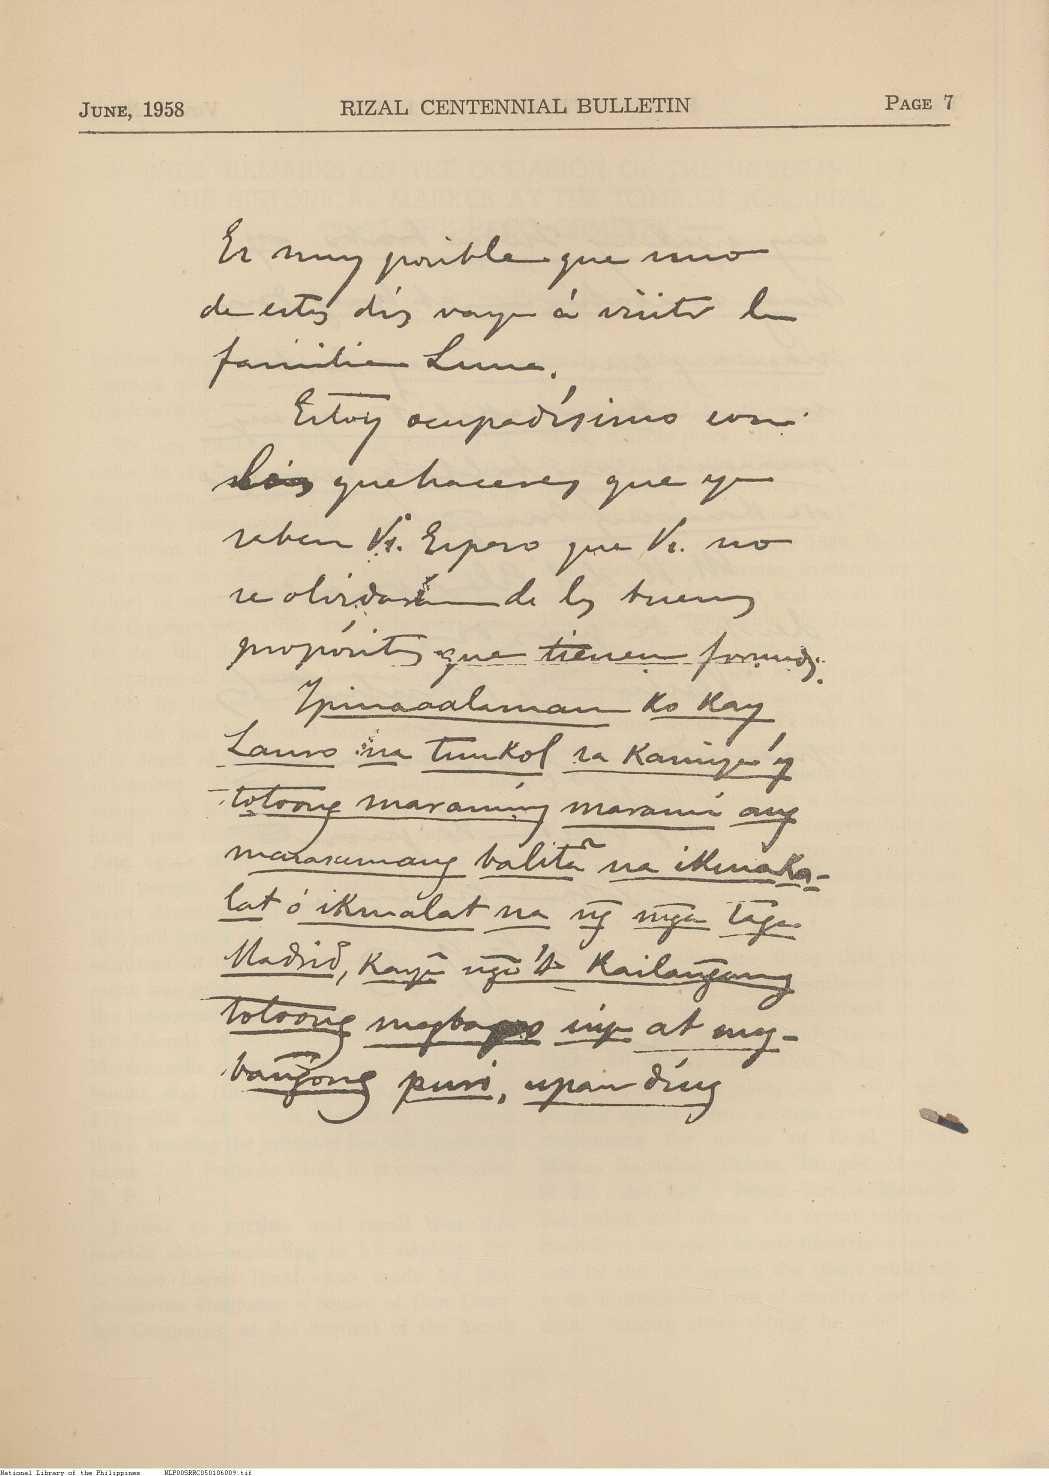 JUNE, 1958 RIZAL CENTENNIAL BULLETIN PAGE 7
Es muy posible que uno
de estos días vaya á visitar la
familia Luna.
Estoy ocupadísimo con
los quehaceres que ya
saben Vs. Espero que Vs. no
se olvidarán de los buenos
propósitos que tienen formados.
Ipinaaalaman ko kay
Lauro na tunkol sa kaniya'y
totoong maraming marami ang
masasamang balita na ikinaka-
lat ó ikinalat na ng̃ mg̃a taga
Madrid, kaya ng̃a't kailang̃ang
totoong magbago siya at mag-
bang̃ong puri, upan ding
National Library of the Philippines NLP00SRRC050106009.tif